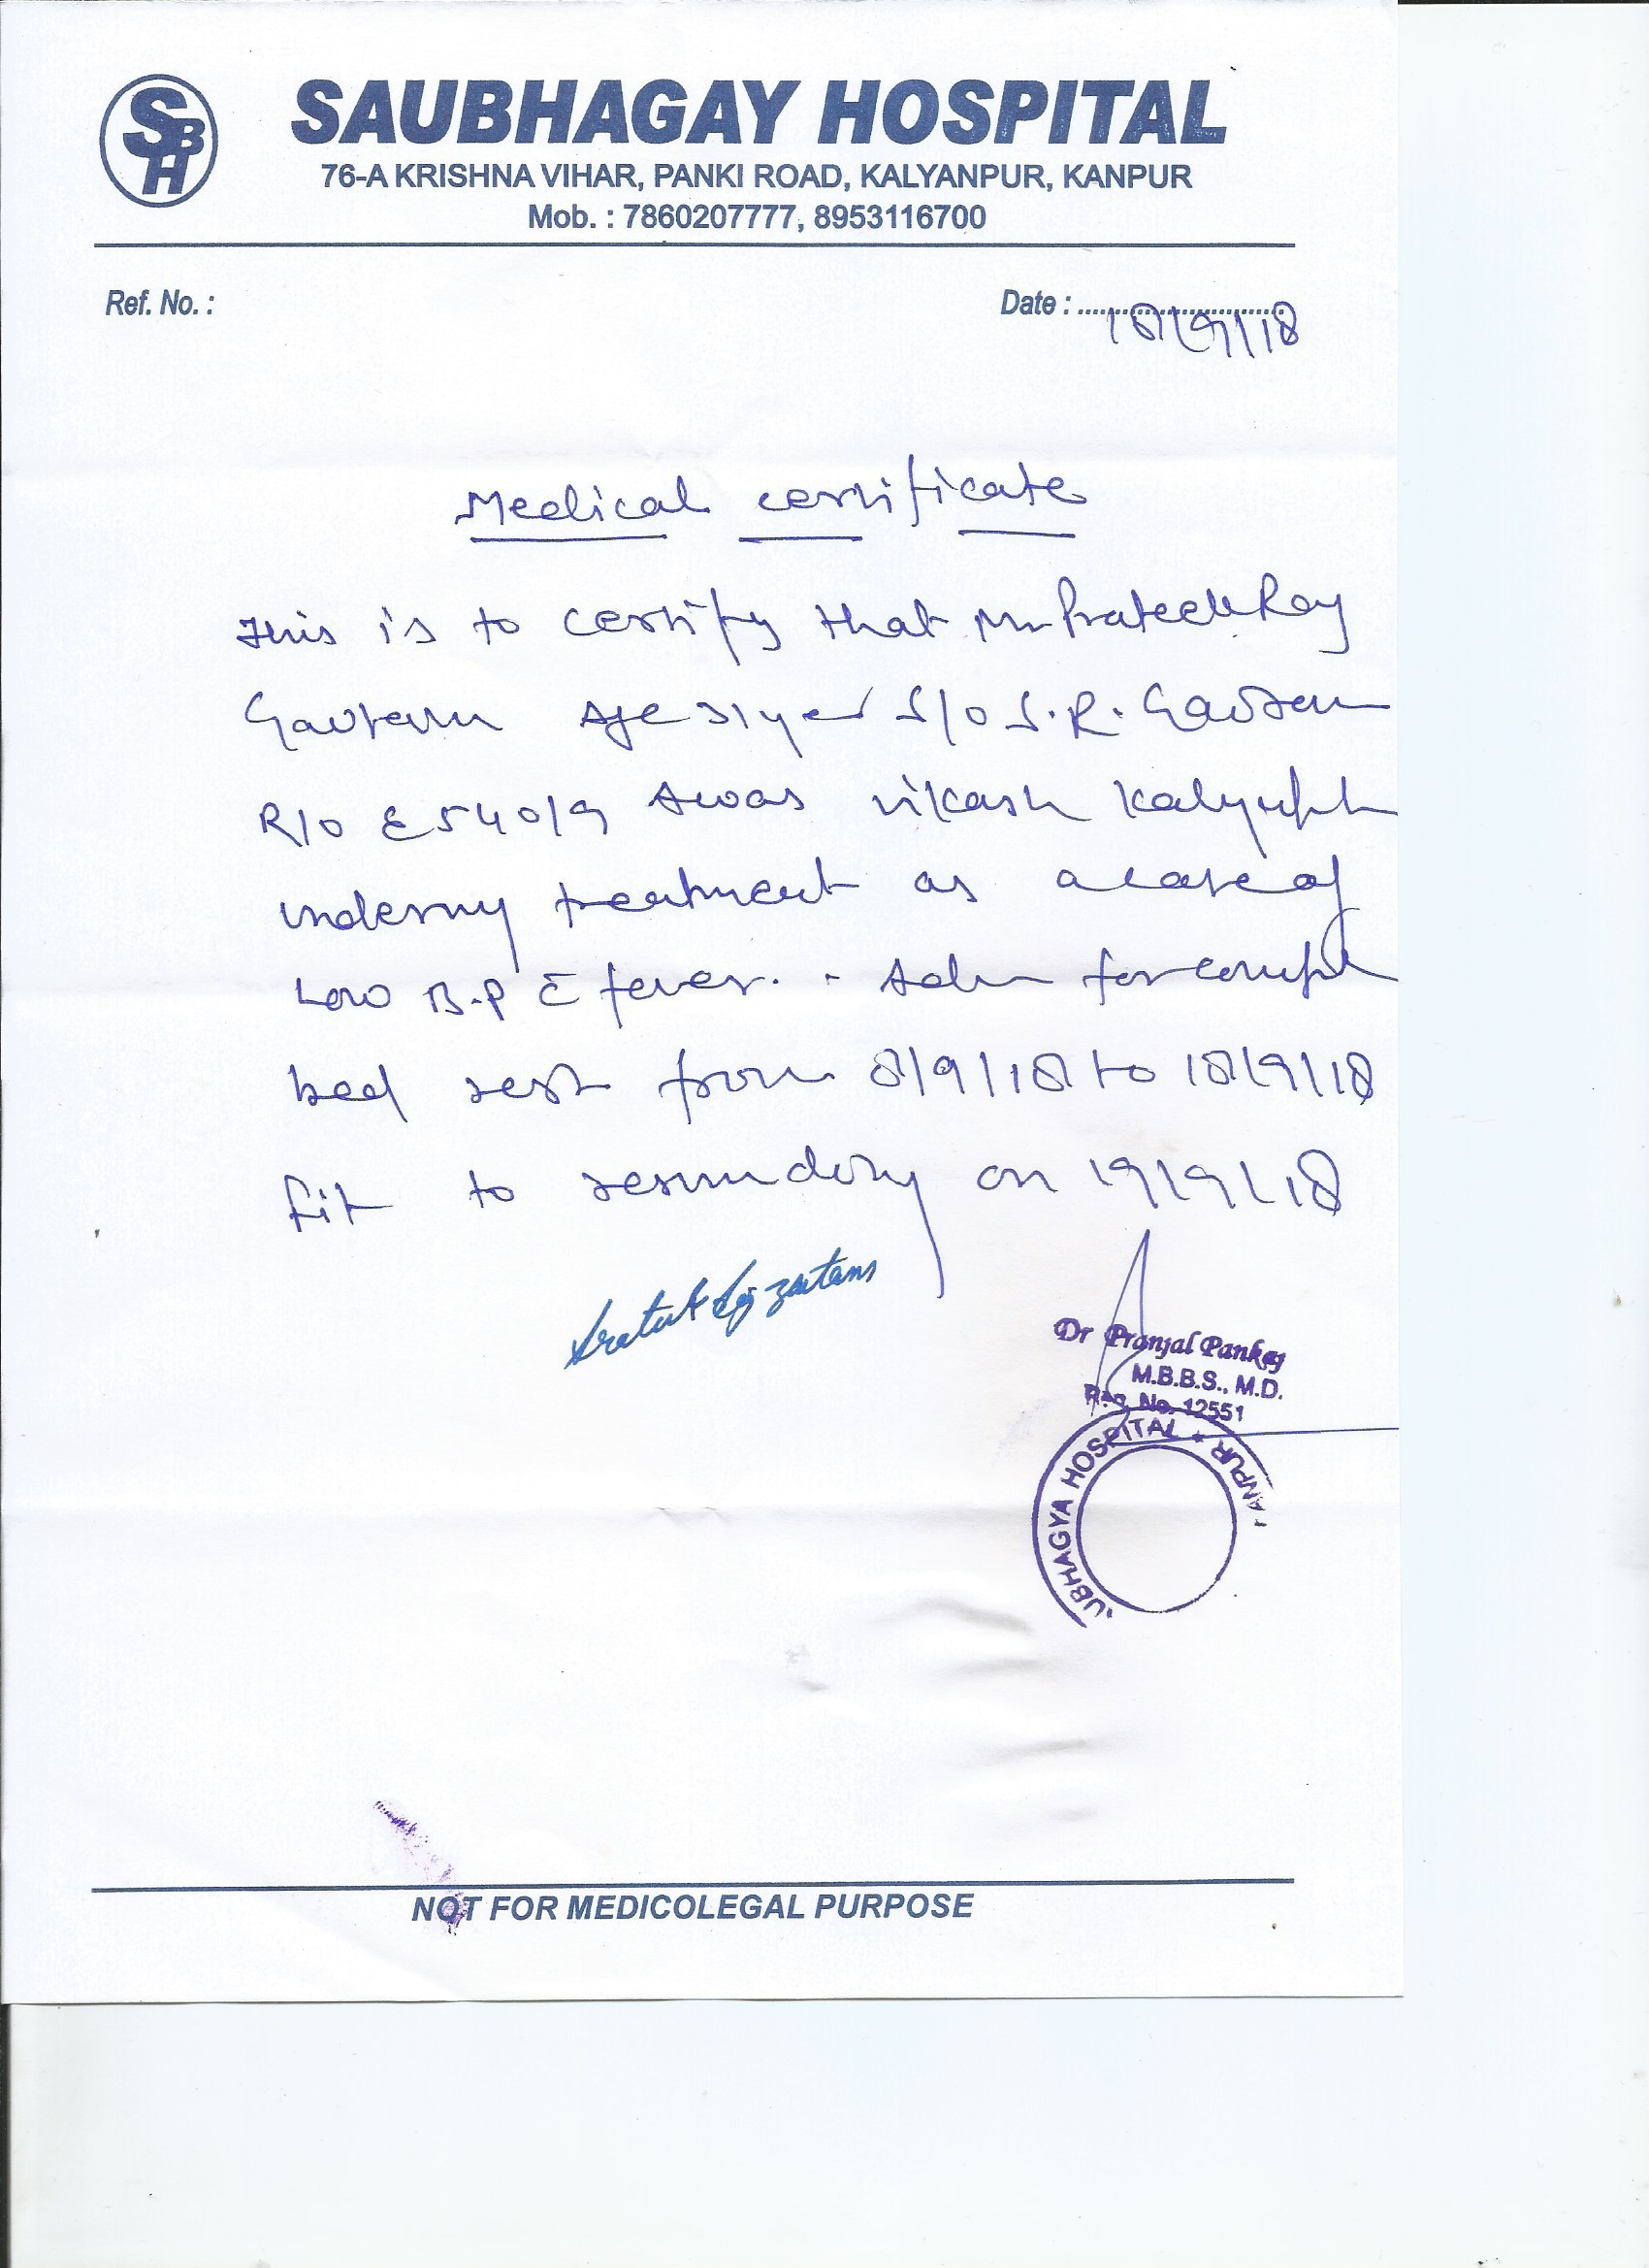 SBH
SAUBHAGAY HOSPITAL
76-A KRISHNA VIHAR, PANKI ROAD, KALYANPUR, KANPUR
Mob. : 7860207777, 8953116700
Ref. No. :
Date : 18/9/18
Medical certificate
This is to certify that Mr Prateek Raj
Gautam Age 31 year S/o S.R. Gautam
R/o E 540/9 Awas vikash
undering treatment as a case of
Low B.P c̄ fever. for
bed rest from 8/9/18 to 18/9/18
fit to on 19/9/18
Dr Pranjal Pankaj
M.B.B.S., M.D.
Reg. No. 12551
UBHAGYA HOSPITAL * KANPUR
NOT FOR MEDICOLEGAL PURPOSE